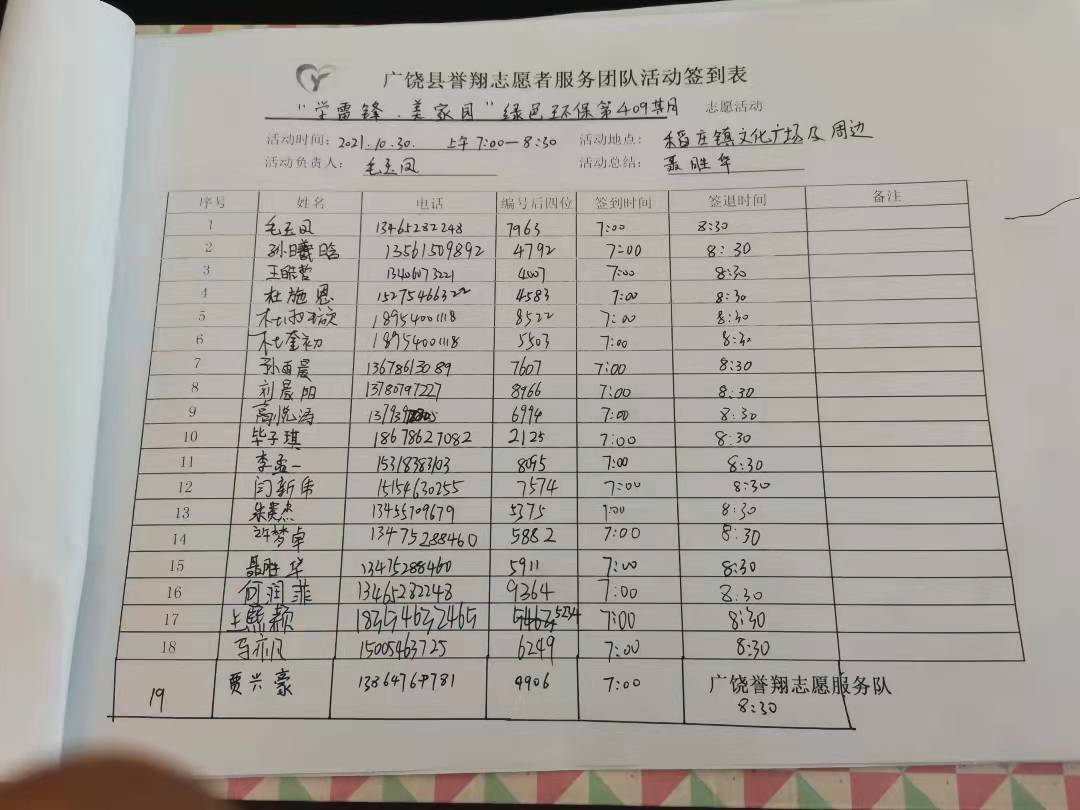 广饶县誉翔志愿者服务团队活动签到表
"学雷锋·美家园"绿色环保第409期 志愿活动
活动时间：2021.10.30. 上午7:00—8:30 活动地点：稻庄镇文化广场及周边
活动负责人：毛玉凤 活动总结：聂胜华
序号 姓名 电话 编号后四位 签到时间 签退时间 备注
1 毛玉凤 13465282248 7963 7:00 8:30
2 孙曦晗 13561509892 4792 7:00 8:30
3 王皓哲 13406073221 4007 7:00 8:30
4 杜施恩 15275466322 4583 7:00 8:30
5 18954001118 8522 7:00 8:30
6 杜奎初 18954001118 5503 7:00 8:30
7 孙雨晨 13678613089 7607 7:00 8:30
8 刘晨阳 13780797227 8966 7:00 8:30
9 高悦涛 6994 7:00 8:30
10 毕子琪 18678627082 2125 7:00 8:30
11 李孟一 15318383103 8095 7:00 8:30
12 闫新伟 15154630255 7574 7:00 8:30
13 朱贵杰 13455709679 5375 7:00 8:30
14 许梦卓 13475288460 5882 7:00 8:30
15 聂胜华 13475288460 5911 7:00 8:30
16 何润菲 13465282248 9364 7:00 8:30
17 王熙颖 5234 7:00 8:30
18 马亦凡 15005463725 6249 7:00 8:30
19 贾兴豪 4906 7:00 8:30
广饶誉翔志愿服务队